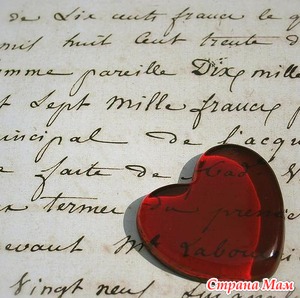 de Six cents francs le q
mis huit Cent trente d
omme pareille Dix mille
t Sept Mille francs p
incipal de l'acqu
faite de
termes du premier
devant Me Labou
Vingt neuf
Страна Мам